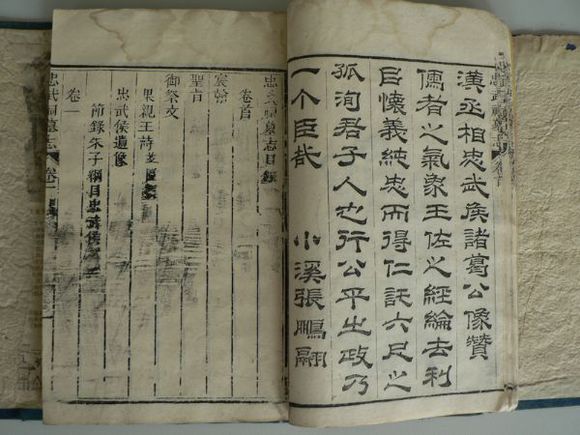 漢丞相忠武侯諸葛公像贊
儒者之氣象王佐之經綸去利
懷義純忠而得仁託六尺之
孤洵君子人也行公平之政乃
一个臣哉
小溪張鵬翮
忠武祠墓志目錄
卷首
宸翰
聖旨
御祭文
果親王詩並
忠武侯遺像
卷一
節錄朱子綱目忠武侯
忠武祠墓志
卷一